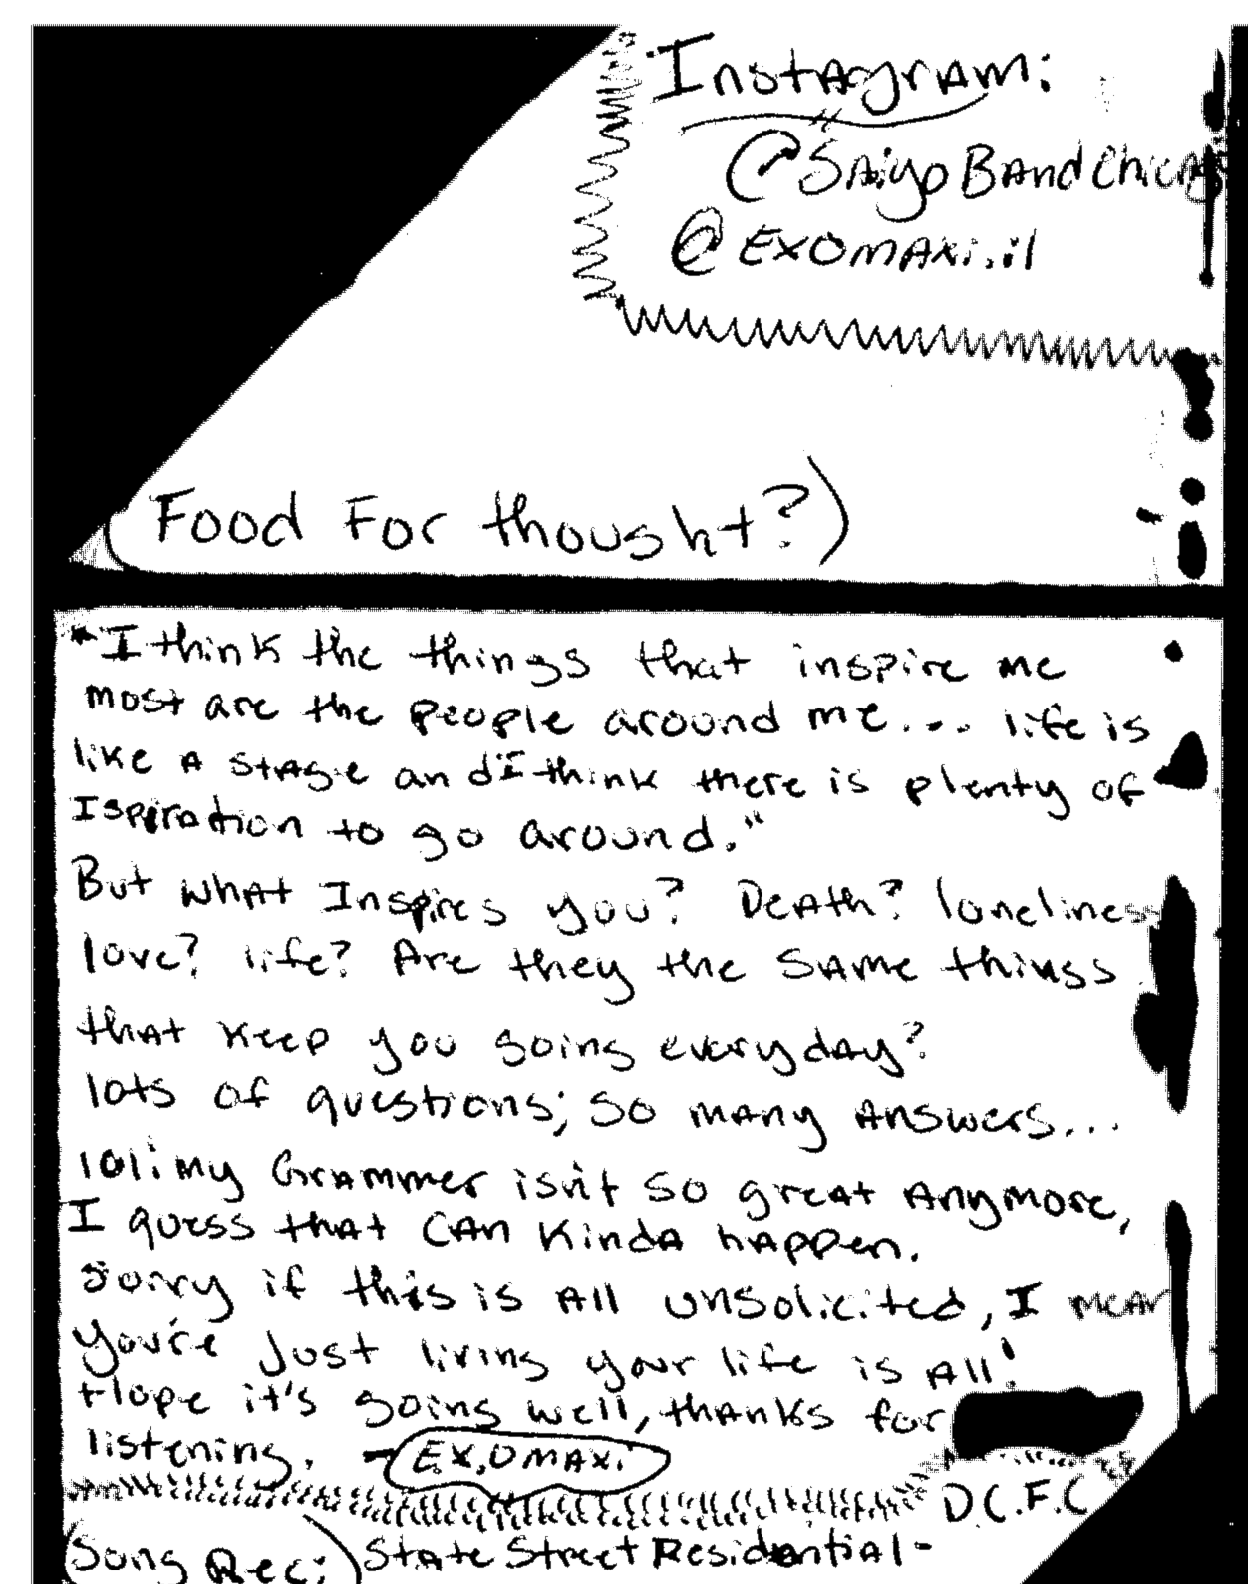 Instagram:
@SaiyoBandChicag
@EXOMAXi.il
(Food For thought?)
"I think the things that inspire me
most are the people around me... life is
like A stage and I think there is plenty of
Ispiration to go around."
But what Inspires you? Death? loneliness
love? life? Are they the same things
that keep you going everyday?
lots of questions; so many Answers...
lol; my Grammer isn't so great Anymore,
I guess that CAN Kinda happen.
Sorry if this is All unsolicited, I mean
you're Just living your life is All!
Hope it's going well, thanks for
listening. - EX.OMAXi
D.C.F.C
(Song Rec:) State Street Residential -